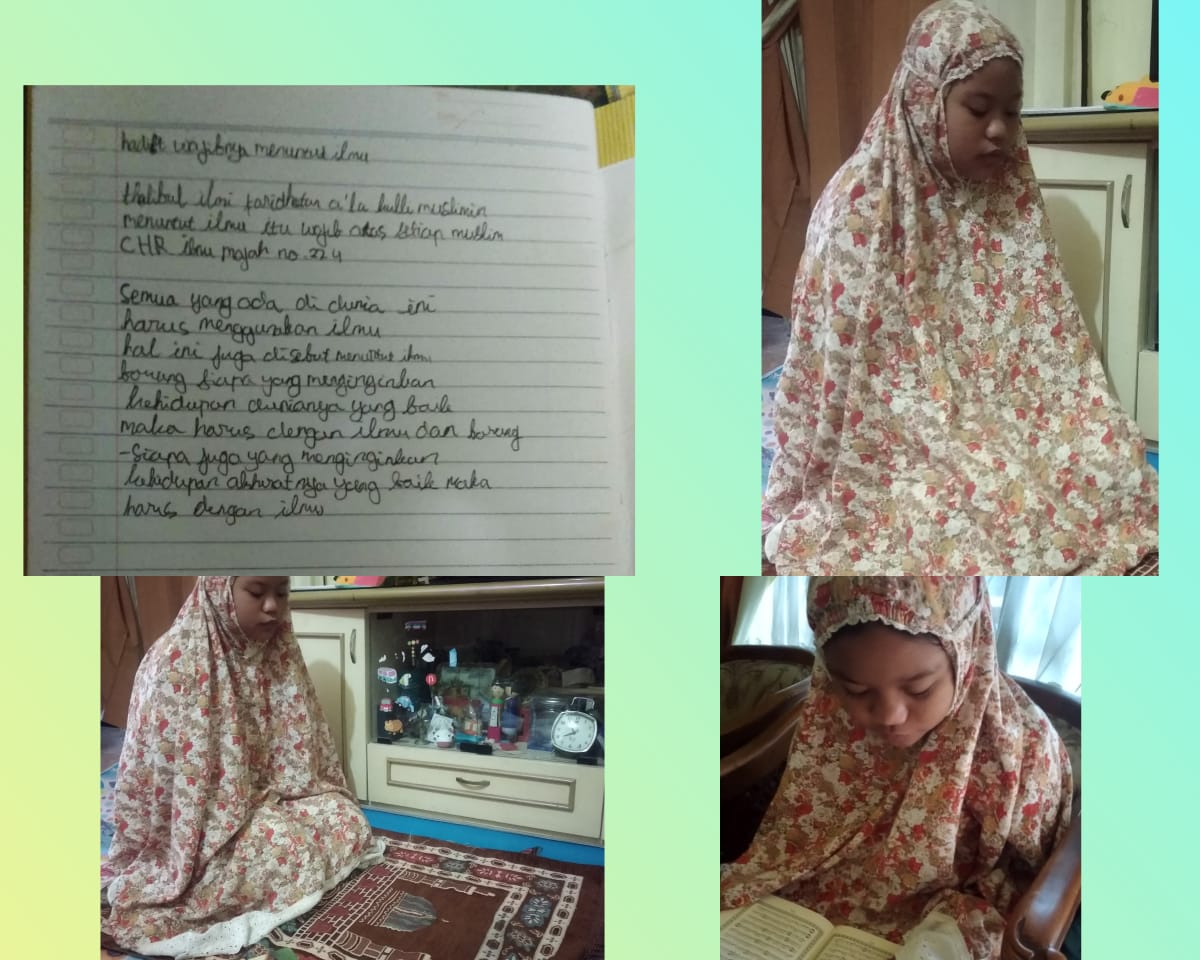 hadist wajibnya menuntut ilmu
thalibul ilmi faridhatan a'la kulli muslimin
menuntut ilmu itu wajib atas setiap muslim
CHR ibnu majah no. 224
Semua yang ada di dunia ini
harus menggunakan ilmu
hal ini juga disebut menuntut ilmu
barang siapa yang menginginkan
kehidupan dunianya yang baik
maka harus dengan ilmu dan barang
-Siapa juga yang menginginkan
kehidupan akhiratnya yang baik maka
harus dengan ilmu